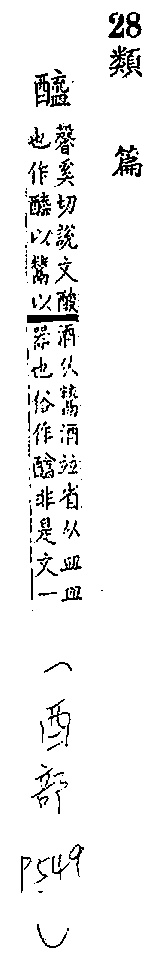 28
類篇
醯
馨奚切說文酸酒从鬻酒竝省从皿皿
也作醯以鬻以器也俗作醯非是文一
(酉部
P.549)